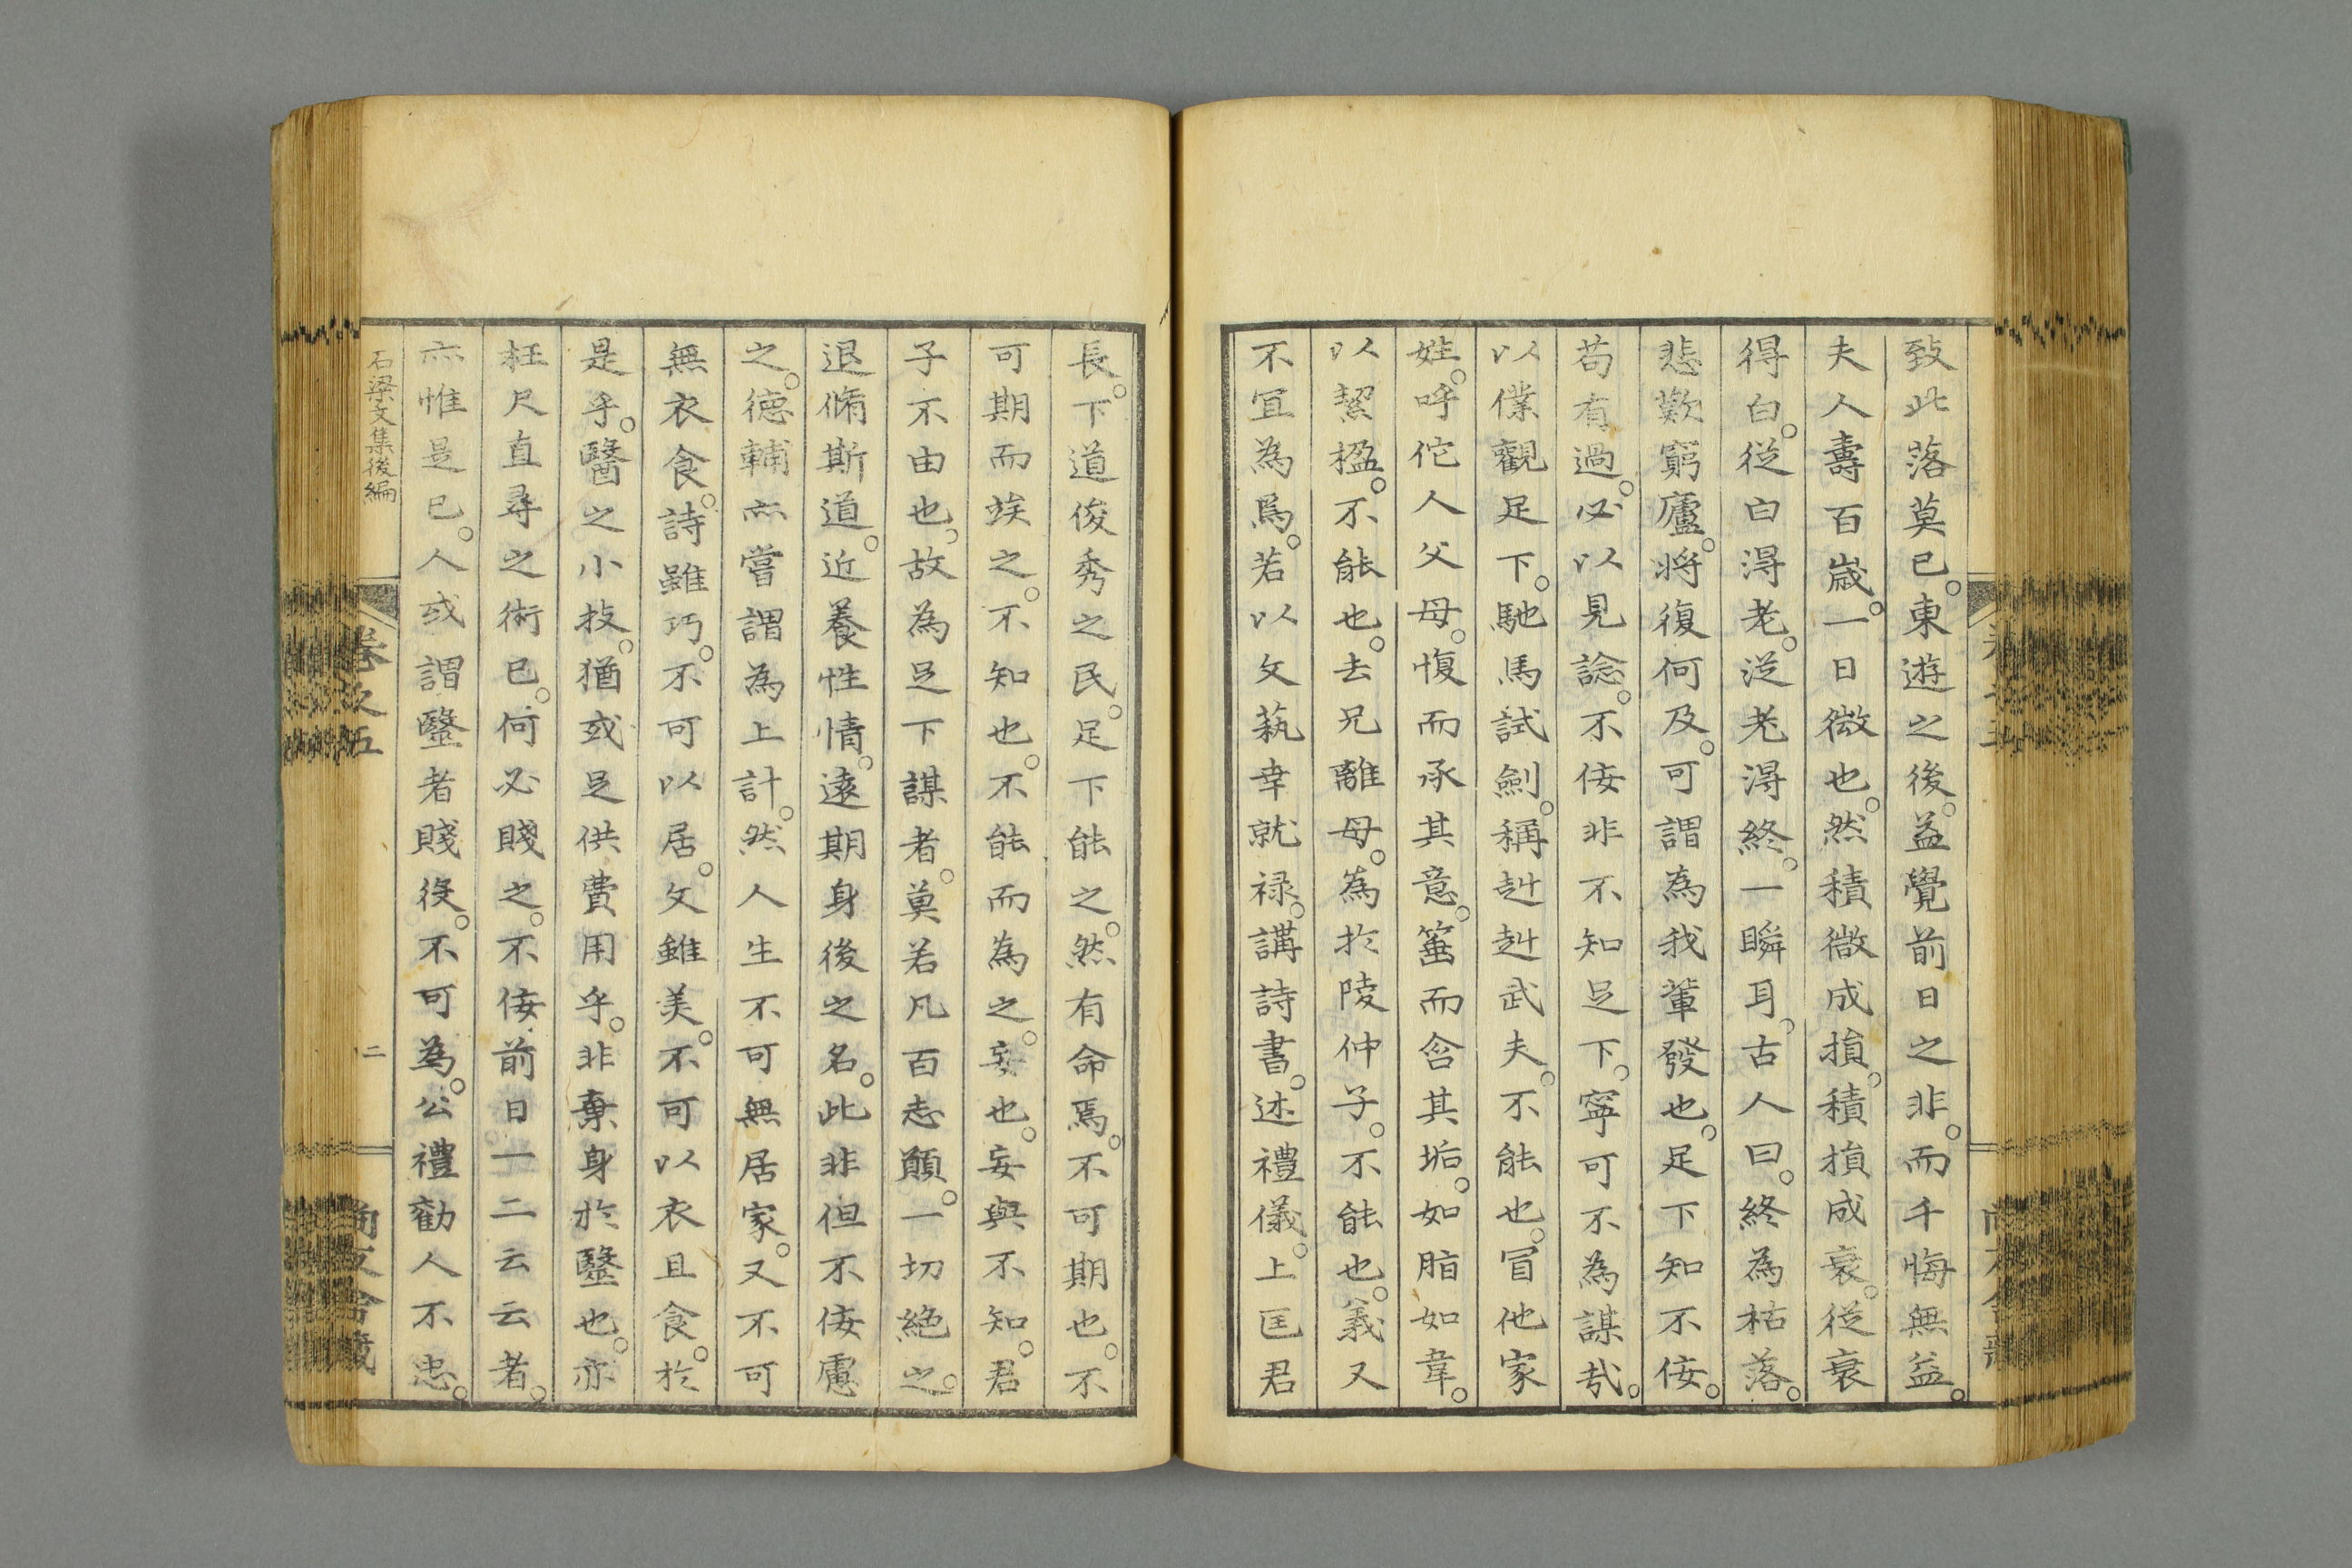 致此落莫已。東遊之後。益覺前日之非。而千悔無益。
夫人壽百歳。一日微也。然積微成損。積損成衰。從衰
得白。從白得老。從老得終。一瞬耳。古人曰。終為枯落。
悲歎窮廬。將復何及。可謂為我輩發也。足下知不佞。
苟有過。必以見諗。不佞非不知足下。寧可不為謀哉。
以僕觀足下。馳馬試劍。稱赳赳武夫。不能也。冒他家
姓。呼佗人父母。愎而承其意。蓄而含其垢。如脂如韋。
以絜楹。不能也。去兄離母。為於陵仲子。不能也。義又
不宜為焉。若以文蓺幸就祿。講詩書。述禮儀。上匡君
長。下道俊秀之民。足下能之。然有命焉。不可期也。不
可期而竢之。不知也。不能而為之。妄也。妄與不知。君
子不由也。故為足下謀者。莫若凡百志願。一切絕之。
退脩斯道。近養性情。遠期身後之名。此非但不佞慮
之。德輔亦嘗謂為上計。然人生不可無居家。又不可
無衣食。詩雖巧。不可以居。文雖美。不可以衣且食。於
是乎。醫之小技。猶或足供費用乎。非棄身於毉也。亦
枉尺直尋之術已。何必賤之。不佞前日一二云云者。
亦惟是已。人或謂毉者賤役。不可為。公禮勸人不忠。
石梁文集後編
卷之五
二